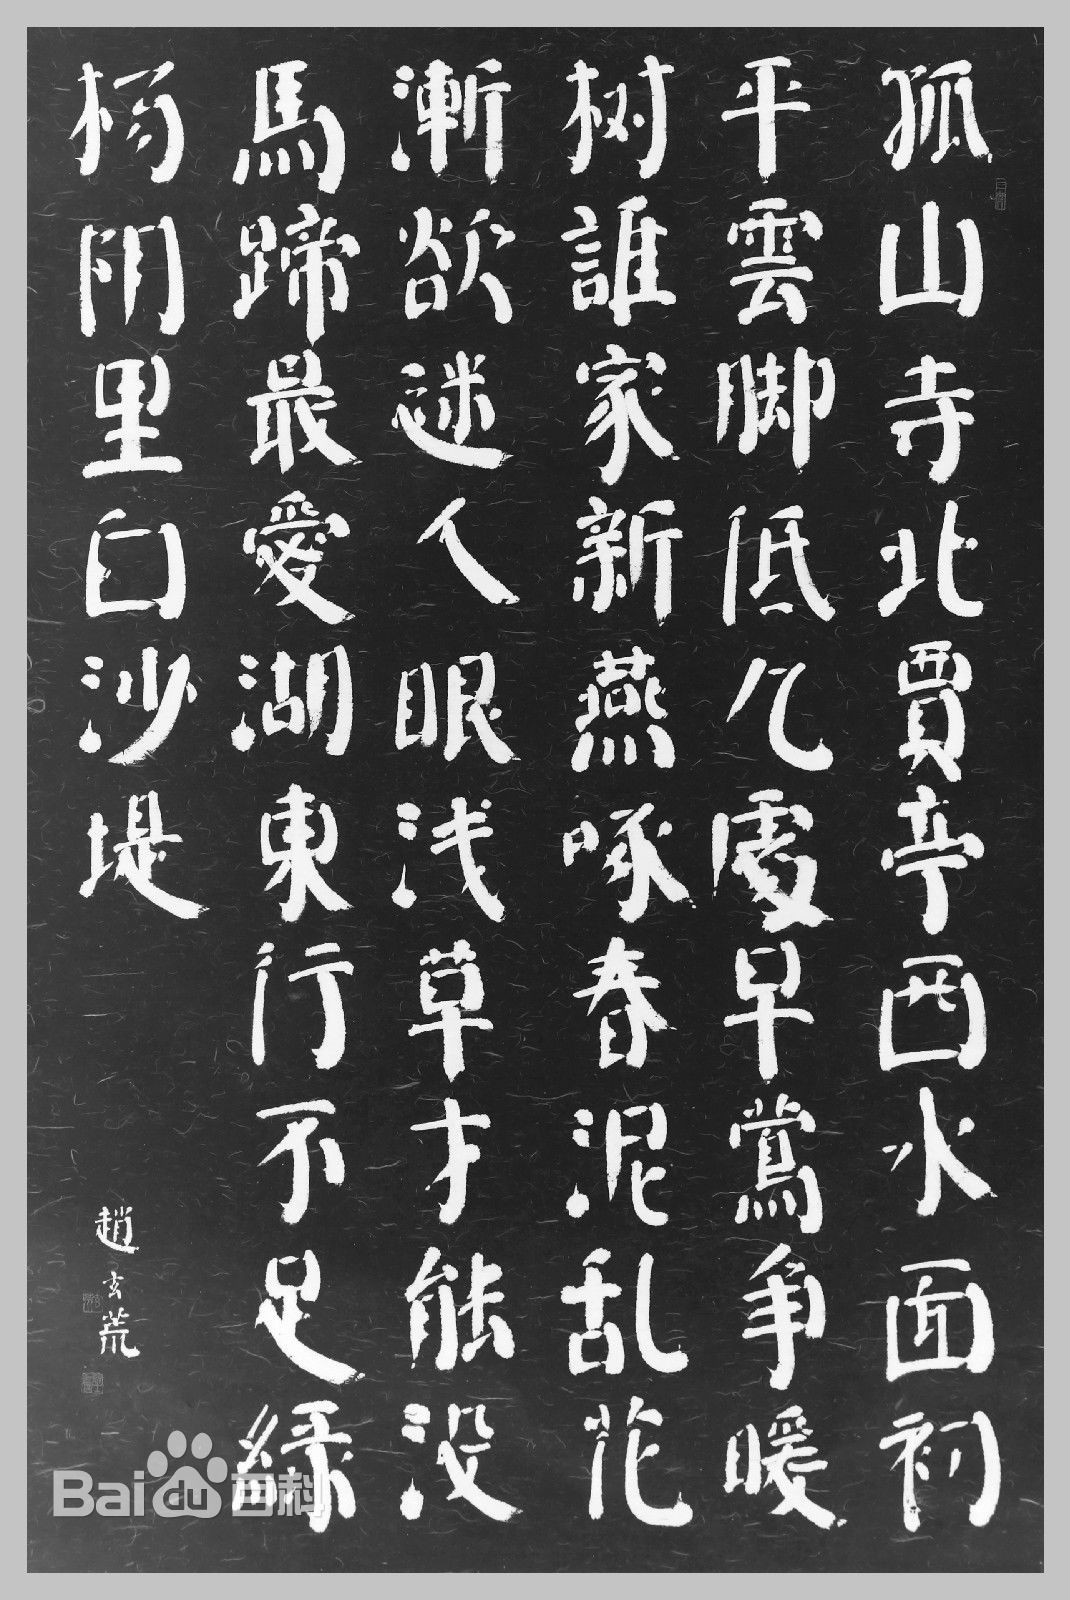 孤山寺北賈亭西水面初
平雲脚低几處早鶯爭暖
树誰家新燕啄春泥乱花
漸欲迷人眼浅草才能没
馬蹄最愛湖東行不足綠
杨阴里白沙堤
趙玄荒
Baidu百科